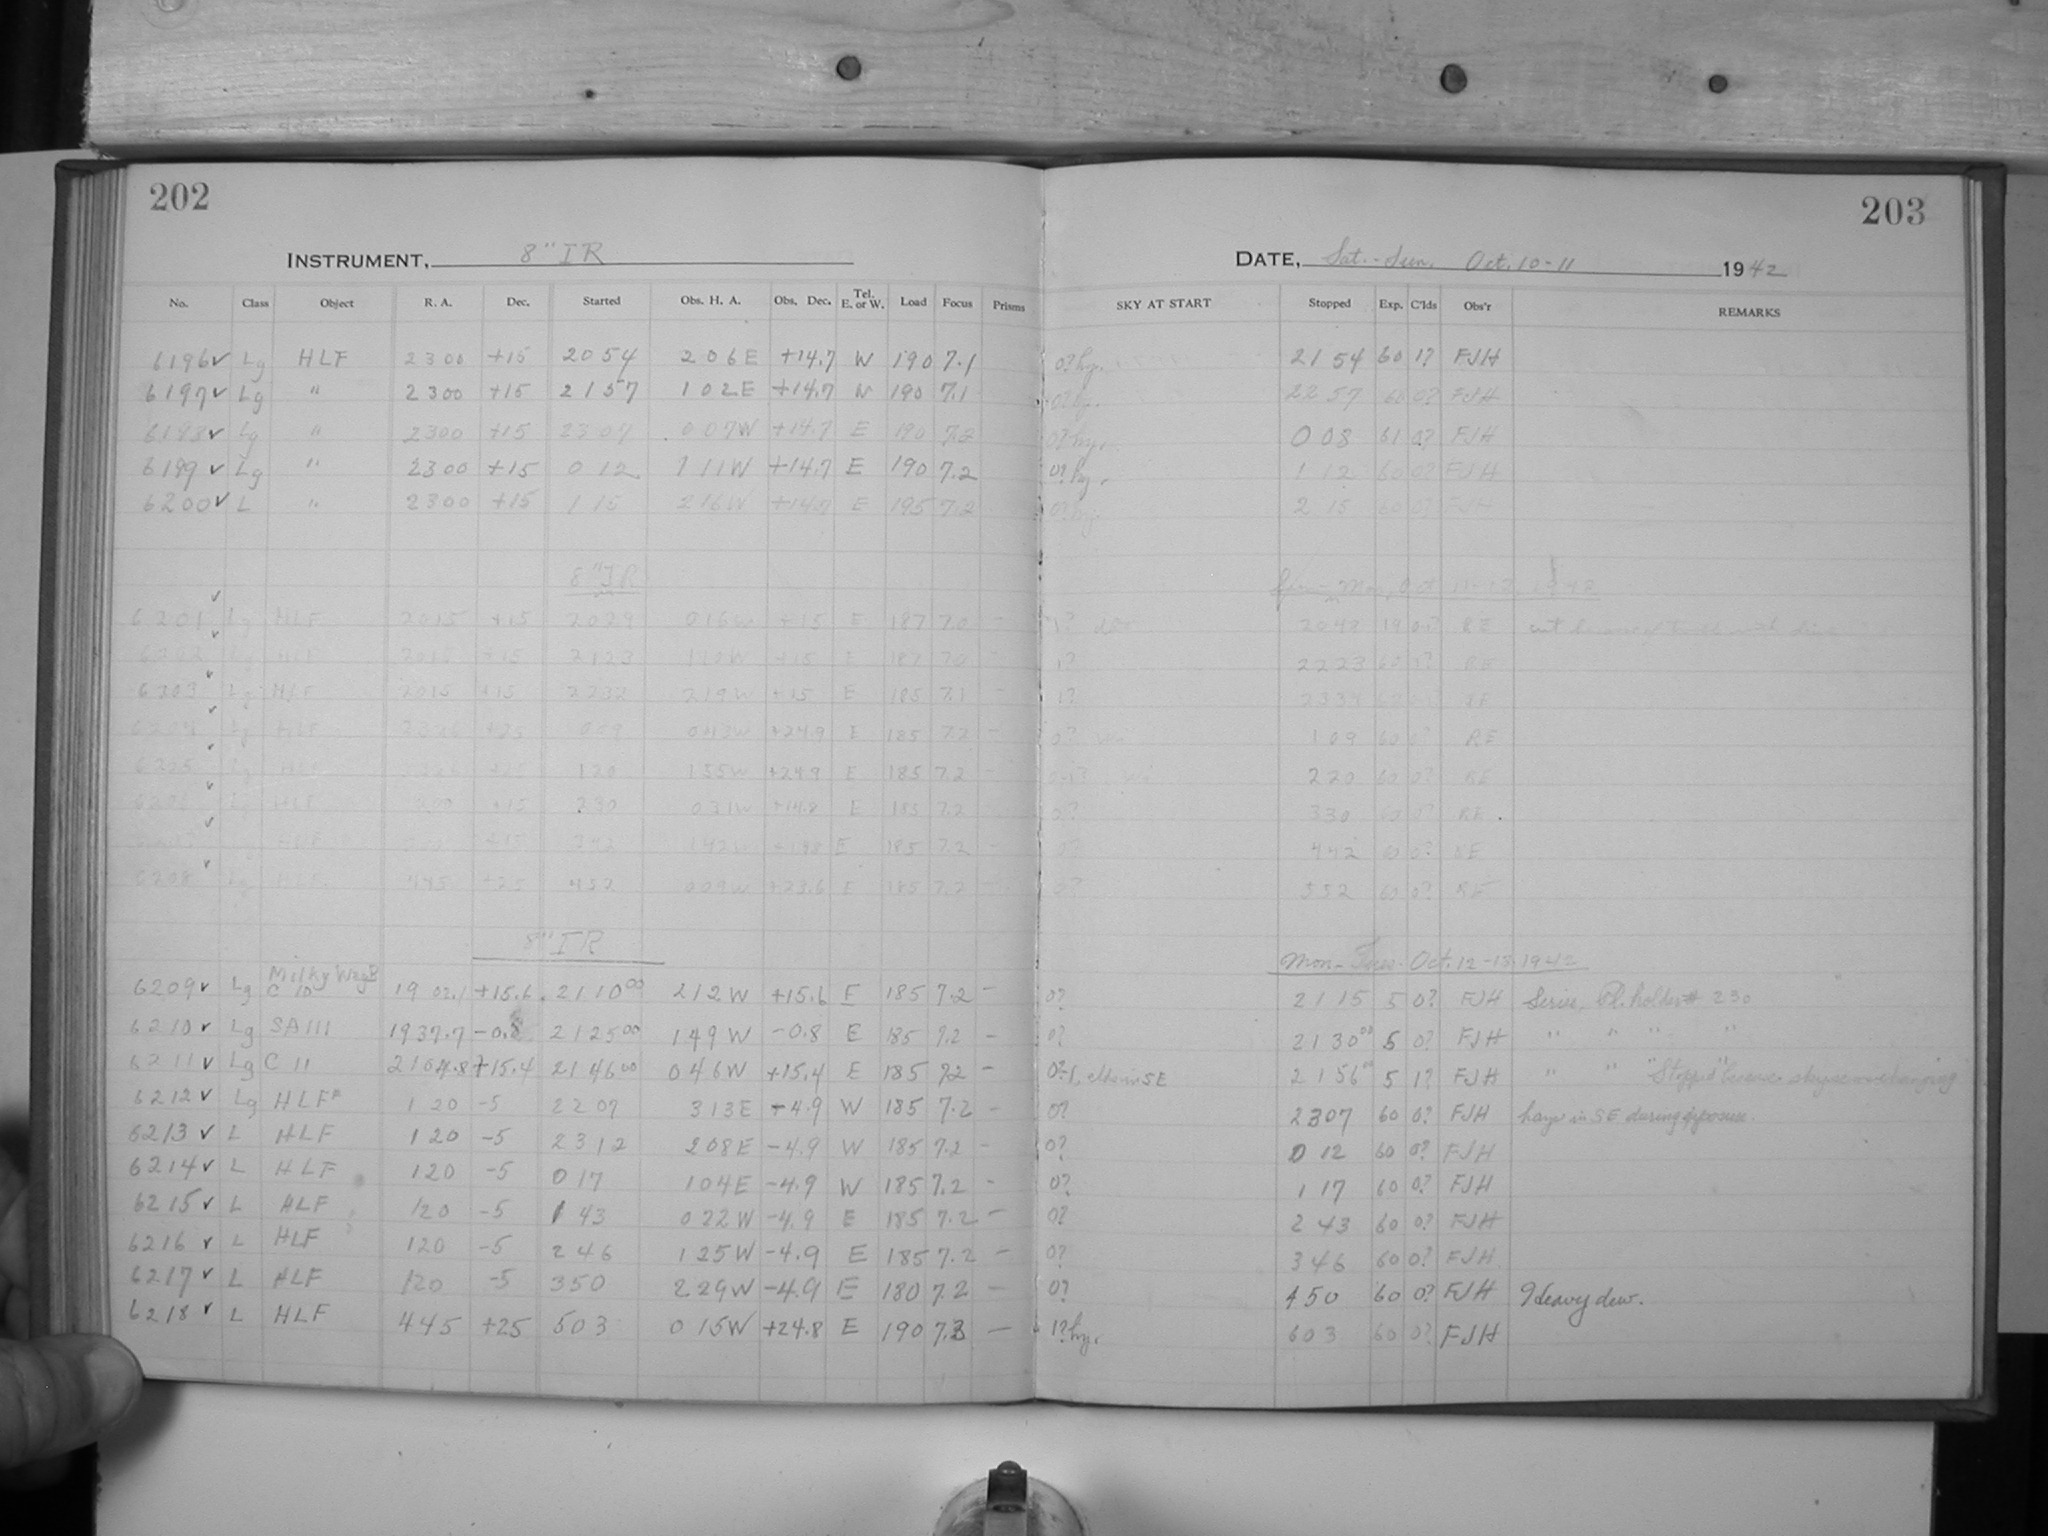 202
203
INSTRUMENT, 8" IR
DATE, Sat.-Sun. Oct. 10-11 1942
No. Class Object R. A. Dec. Started Obs. H. A. Obs. Dec. Tel. E. or W. Load Focus Prisms SKY AT START Stopped Exp. C'lds Obs'r REMARKS
6196 ✓ Lg HLF 23 00 +15 20 54 2 06 E +14.7 W 190 7.1 0? hy. 21 54 60 1? FJH
6197 ✓ Lg " 23 00 +15 21 57 1 02 E +14.7 W 190 7.1 0? hy. 22 57 60 0? FJH
6198 ✓ Lg " 23 00 +15 23 07 0 07 W +14.7 E 190 7.2 0? hy. 0 08 61 0? FJH
6199 ✓ Lg " 23 00 +15 0 12 1 11 W +14.7 E 190 7.2 0? hy. 1 12 60 0? FJH
6200 ✓ L " 23 00 +15 1 15 2 16 W +14.7 E 195 7.2 0? hy. 2 15 60 0? FJH
8" IR Sun-Mon, Oct 11-12, 1942
6201 ✓ Lg HLF 20 15 +15 20 29 0 16 W +15 E 187 7.0 - 1? 20 48 19 0? RE
6202 ✓ Lg HLF 20 15 +15 21 23 1 10 W +15 E 187 7.0 - 1? 22 23 60 1? RE
6203 ✓ Lg HLF 20 15 +15 22 32 2 19 W +15 E 185 7.1 - 1? RE
6204 ✓ Lg HLF +25 0 09 0 43 W +24.9 E 185 7.2 - 0? 1 09 60 0? RE
6205 ✓ Lg HLF +25 1 20 1 55 W +24.9 E 185 7.2 - 2 20 60 0? RE
6206 ✓ Lg HLF +15 2 30 0 31 W +14.8 E 185 7.2 - 0? 3 30 60 0? RE
✓ HLF +15 3 42 1 42 W +14.8 E 185 7.2 - 0? 4 42 60 0? RE
6208 ✓ Lg HLF 4 45 +25 4 52 0 09 W +23.6 E 185 7.2 - 0? 5 52 60 0? RE
8" IR Mon-Tues. Oct. 12-13, 1942
6209 ✓ Lg Milky Way C 10 19 02.1 +15.6 21 10 00 2 12 W +15.6 E 185 7.2 - 0? 21 15 5 0? FJH Series, Pl. holder # 230
6210 ✓ Lg SA 111 19 37.7 -0.8 21 25 00 1 49 W -0.8 E 185 7.2 - 0? 21 30 00 5 0? FJH " " " "
6211 ✓ Lg C 11 21 04.8 +15.4 21 46 00 0 46 W +15.4 E 185 7.2 - 0?-1, clds in SE 21 56 00 5 1? FJH " " "Stopped"
6212 ✓ Lg HLF 1 20 -5 22 07 3 13 E -4.9 W 185 7.2 - 0? 23 07 60 0? FJH haze in SE during exposure.
6213 ✓ L HLF 1 20 -5 23 12 2 08 E -4.9 W 185 7.2 - 0? 0 12 60 0? FJH
6214 ✓ L HLF 1 20 -5 0 17 1 04 E -4.9 W 185 7.2 - 0? 1 17 60 0? FJH
6215 ✓ L HLF 1 20 -5 1 43 0 22 W -4.9 E 185 7.2 - 0? 2 43 60 0? FJH
6216 ✓ L HLF 1 20 -5 2 46 1 25 W -4.9 E 185 7.2 - 0? 3 46 60 0? FJH
6217 ✓ L HLF 1 20 -5 3 50 2 29 W -4.9 E 180 7.2 - 0? 4 50 60 0? FJH Heavy dew.
6218 ✓ L HLF 4 45 +25 5 03 0 15 W +24.8 E 190 7.3 - 1? hy. 6 03 60 0? FJH